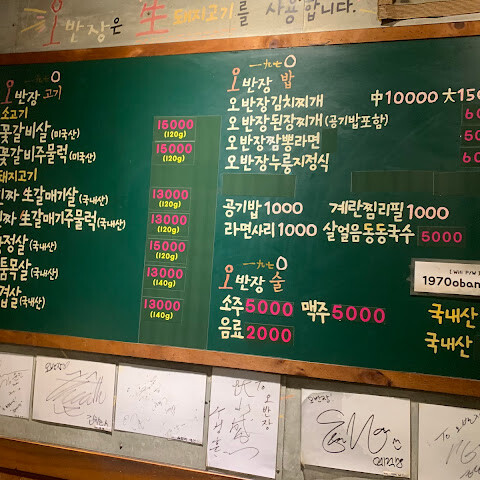 오반장은 生 돼지고기를 사용합니다.
오반장 고기
소고기
꽃갈비살(미국산) 15000 (120g)
꽃갈비주물럭(미국산) 15000 (120g)
돼지고기
진짜 생갈매기살(국내산) 13000 (120g)
진짜 생갈매기주물럭(국내산) 13000 (120g)
정살(국내산) 15000 (120g)
목살(국내산) 13000 (140g)
겹살(국내산) 13000 (140g)
오반장 밥
오반장김치찌개 中10000 大150
오반장된장찌개(공기밥포함) 60
오반장짬뽕라면 50
오반장누룽지정식 60
공기밥 1000 계란찜리필 1000
라면사리 1000 살얼음동동국수 5000
오반장 술
소주 5000 맥주 5000
음료 2000
1970oban
국내산
국내산